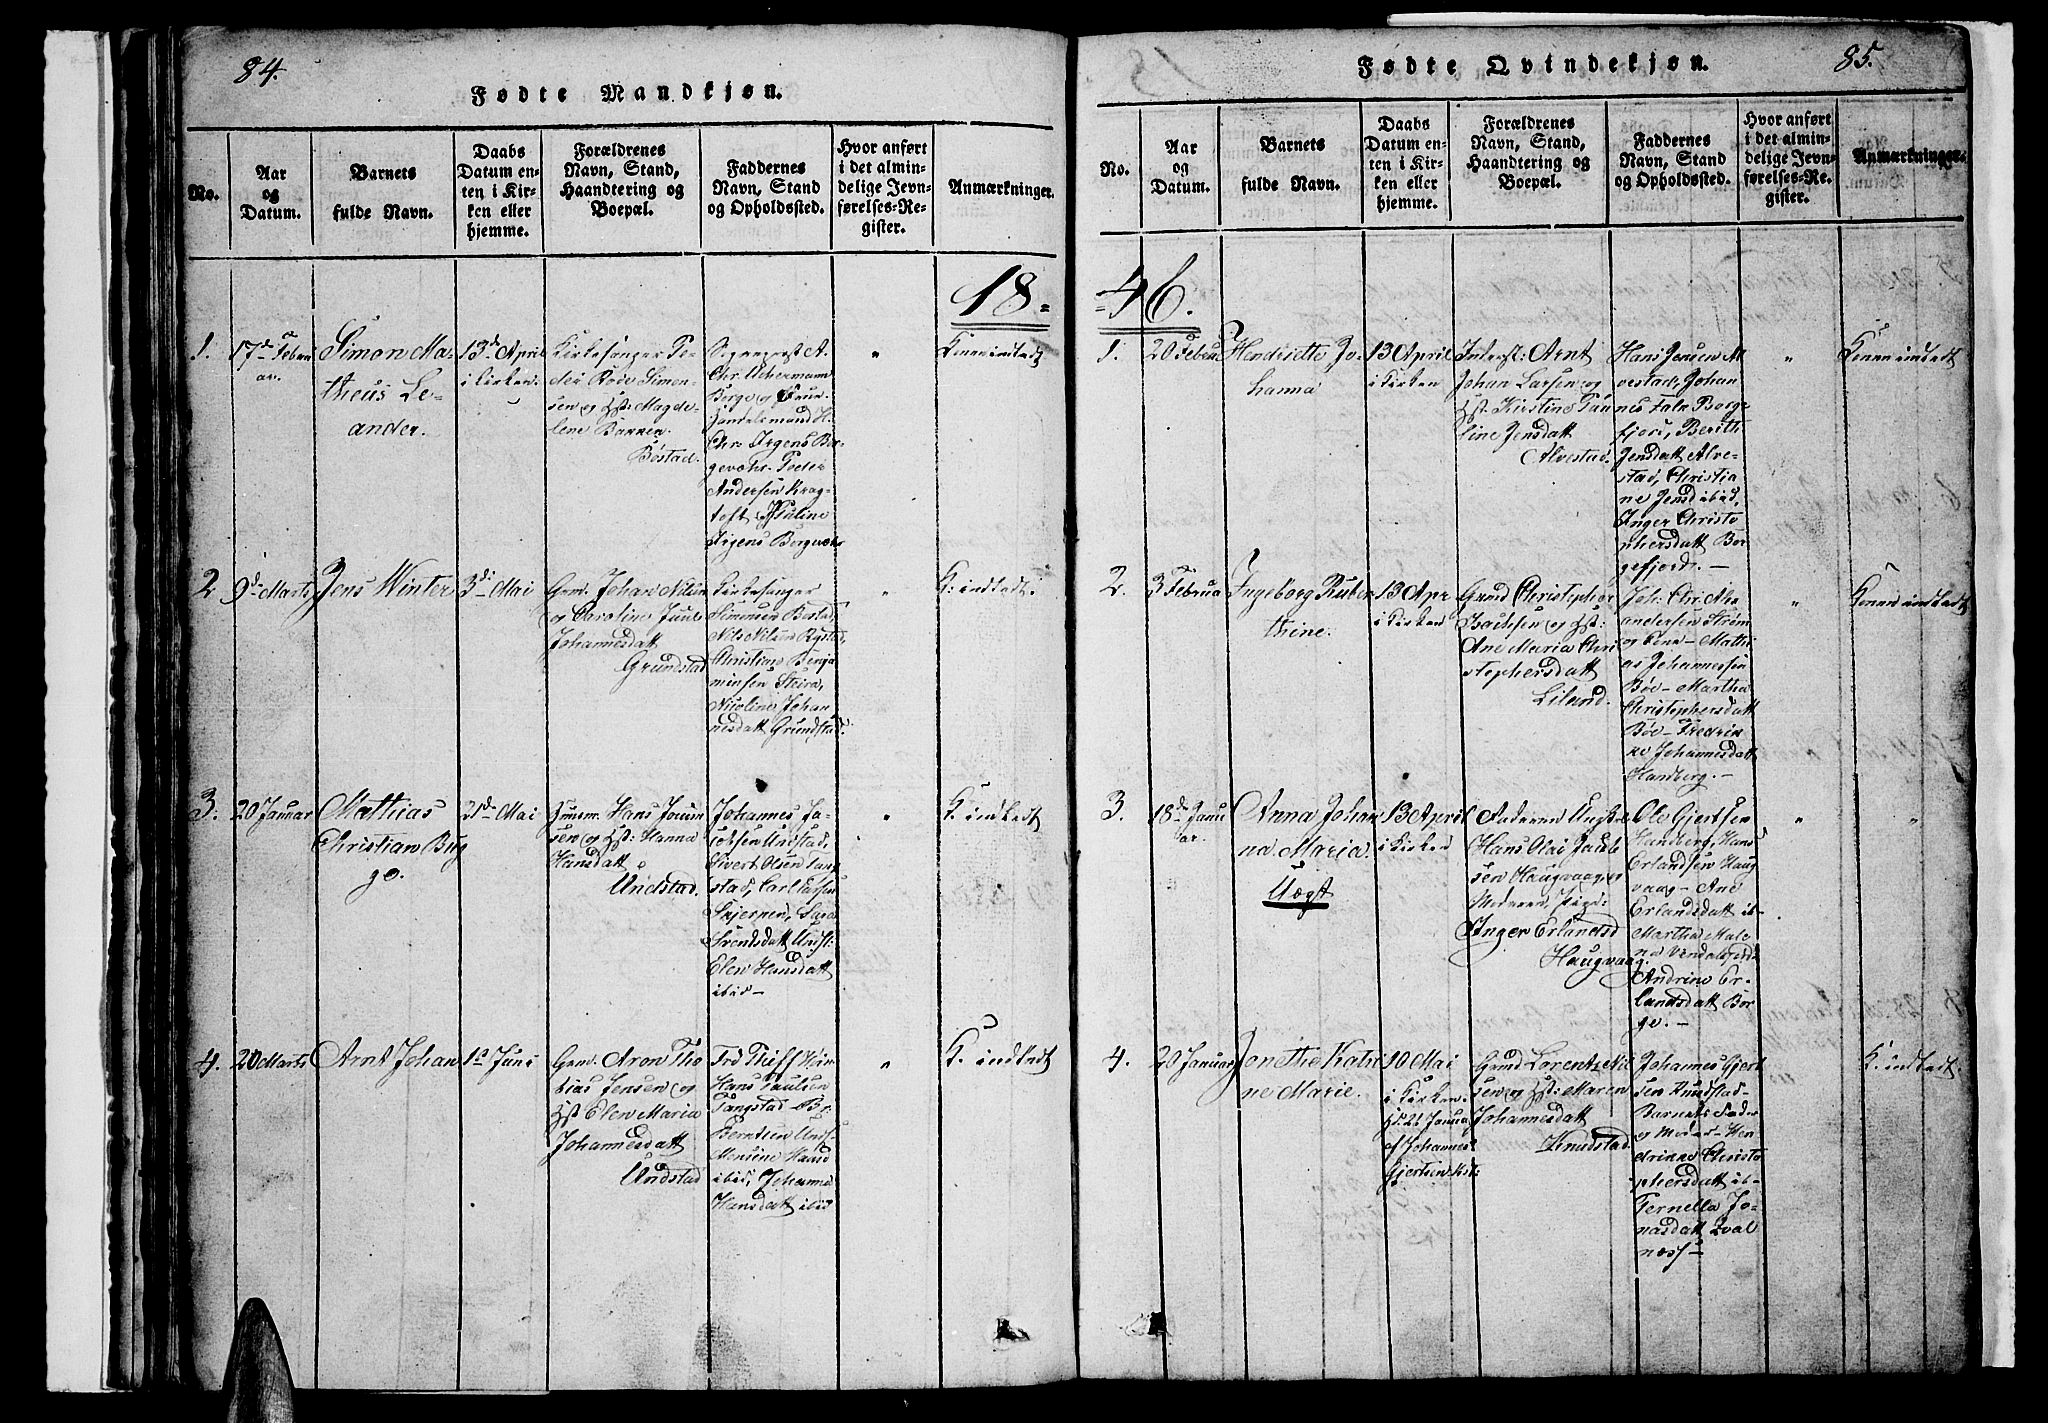 84.
Fødte Mandkjøn.
No.
Aar
og
Datum.
Barnets
fulde Navn.
Daabs
Datum en-
ten i Kir-
ken eller
hjemme.
Forældrenes
Navn, Stand,
Haandtering og
Boepæl.
Faddernes
Navn, Stand
og Opholdssted.
Hvor anført
i det almin-
delige Jevn-
førelses-Re-
gister.
Anmærkninger.
18-
1.
17de Febru
ar.
Simon Ma-
theus Le-
ander.
13de April
i Kirken.
Kirkesanger Pe-
der Rode Simon-
sen og Hst: Magda-
lene
Bøstad.
Sogneprest A.
Chr. Ackermann
Borge og Frue
Handelsmand H.
Chr. Irgens Bor-
gevær. Peder
Andersen Krag-
toft og Pauline
Irgens Borgevær
"
2
9de Marts
Jens Winter
3de Mai
Grmd. Johan Nilsen
og Caroline Juul
Johannesdatt
Grundstad
Kirkesanger
Simonsen Bøstad,
Nils Nilsen Rystad,
Christian Benja
minsen Steira,
Nicoline Johan
nesdatt Grundstad.
"
K: indtedt.
3.
20 Januar
Mathias
Christian Bug
ge.
21de Mai
Huusm. Hans Joium
sen og Hst: Hanna
Hansdatt
Undstad.
Johannes Ja-
cobsen Undstad,
Sivert Olsen Tang
stad, Carl Larsen
Skjerpen, Sara
Svendsdatt Undst:
Elen Hansdatt
ibid-
"
K. indtedt
4.
20 Marts
Arnt Johan
1ste Juni
Grmd. Aron Tho
bias Jensen og
Hst Elen Maria
Johannesdatt
Undstad
Hans Paulsen
Tangstad
Berntsen Undst.
ibid, Johanna
Hansdatt ibid
"
K. indtedt
85.
Fødte Qvindekjøn.
No.
Aar
og
Datum.
Barnets
fulde Navn.
Daabs
Datum en-
ten i Kir-
ken eller
hjemme.
Forældrenes
Navn, Stand,
Haandtering og
Boepæl.
Faddernes
Navn, Stand
og Opholdssted.
Hvor anført
i det almin-
delige Jevn-
førelses-Re-
gister.
Anmærkninger.
=46.
1.
20 Febru
Henriette Jo-
hanna
13 April
i Kirken
Inderst: Arnt
Johan Larsen og
Hst. Kirstine Pau
line Jensdatt
Alvestad.
Hans Jensen Al
vestad, Johan
nes Falk Borge
fjord, Berith
Jensdatt Alve-
stad, Christia-
ne Jensd ibid,
Inger Christo
phersdatt Bor-
gefjord. -
"
2.
3 Februa
Ingeborg Ruben
thine.
13 Apr
i Kirken
Grmd Christopher
Isachsen og Hst:
Ane Maria Chri
stophersdatt
Liland.
Joh: Chr: Alex
andersen Strøm
og Kone - Mathi
as Johannessen
Bøe - Martha
Christophersdatt
Bøe - Fredrik
ke Johannesdatt
Handberg. -
"
3.
18de Janu
ar.
Anna Johan
na Maria.
Uægt
13 April
i Kirken
Faderen Ungk:
Hans Olai Jacob
sen Haugvaag, og
Moderen, Pige:
Inger Erlandsd
Haugvaag.
Ole Gjertsen
Handberg, Hans
Erlandsen Haug
vaag - Ane
Erlandsdatt ib-
Martha Male-
na
Andrine Er-
landsdatt Bor-
ge. -
"
"
4.
20 Januar
Jonethe Kathri
ne Marie.
10 Mai
i Kirken.
Hd. 21 Janua
af Johannes
Gjertsen Kst:
Grmd Lorentz Nil
sen og Hst: Maren
Johannesdatt
Knudstad
Johannes Gjert
sen Knudstad-
Barnets Fader
og Moder - Hen
drikke Christo
phersdatt ib-
Pernella Jo-
nasdatt Qval
næss-
K. indtedt.